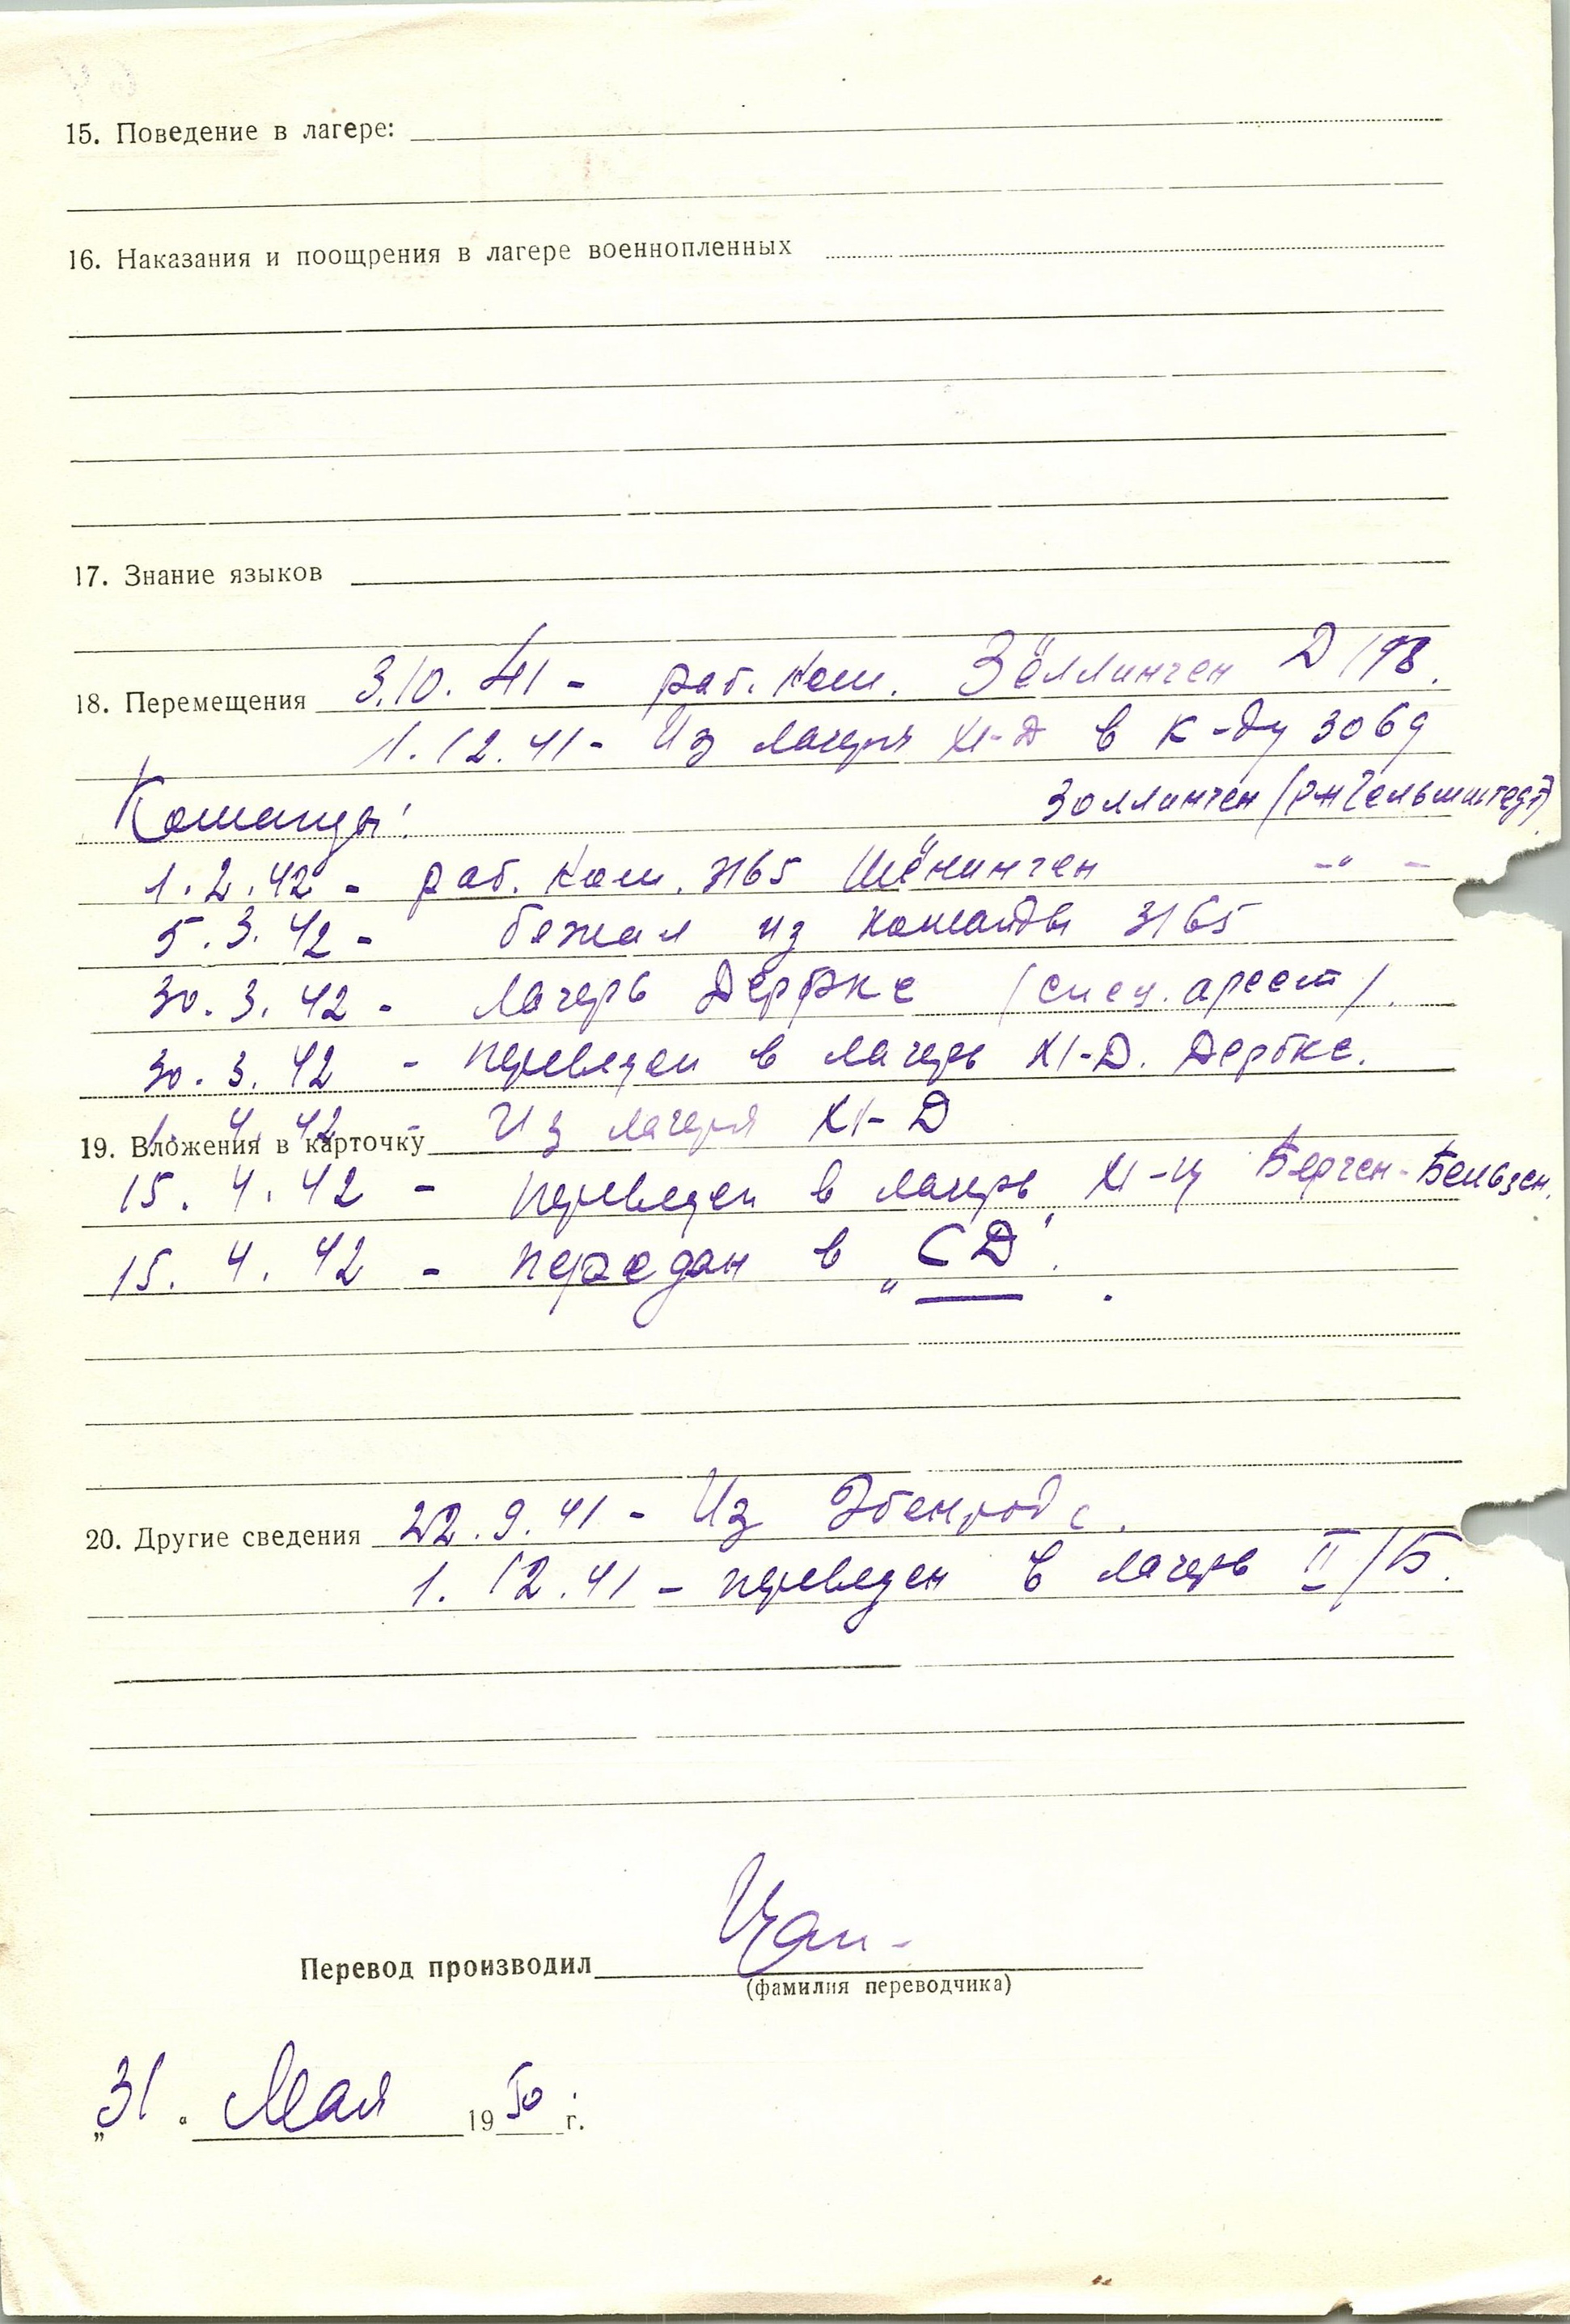 15. Поведение в лагере:
16. Наказания и поощрения в лагере военнопленных
17. Знание языков
18. Перемещения 3.10.41 - раб. ком. Зёллинген D 198.
1.12.41 - Из лагеря XI-Д в к-ду 3069
Команды: Золлинген (р-н Гельмштедт)
1.2.42 - раб. ком. 3165 Шёнинген -"-
5.3.42 - бежал из команды 3165
30.3.42 - лагерь Дёрбке (спец. арест).
30.3.42 - переведен в лагерь XI-Д. Дербке.
1. 4. 42 - Из лагеря XI-Д
19. Вложения в карточку
15. 4. 42 - переведен в лагерь XI-Ц Берген-Бельзен.
15. 4. 42 - передан в „СД".
20. Другие сведения 22.9.41 - Из Эбенроде.
1.12.41 - переведен в лагерь II/Б.
Перевод производил
(фамилия переводчика)
„31" Мая 1950 г.